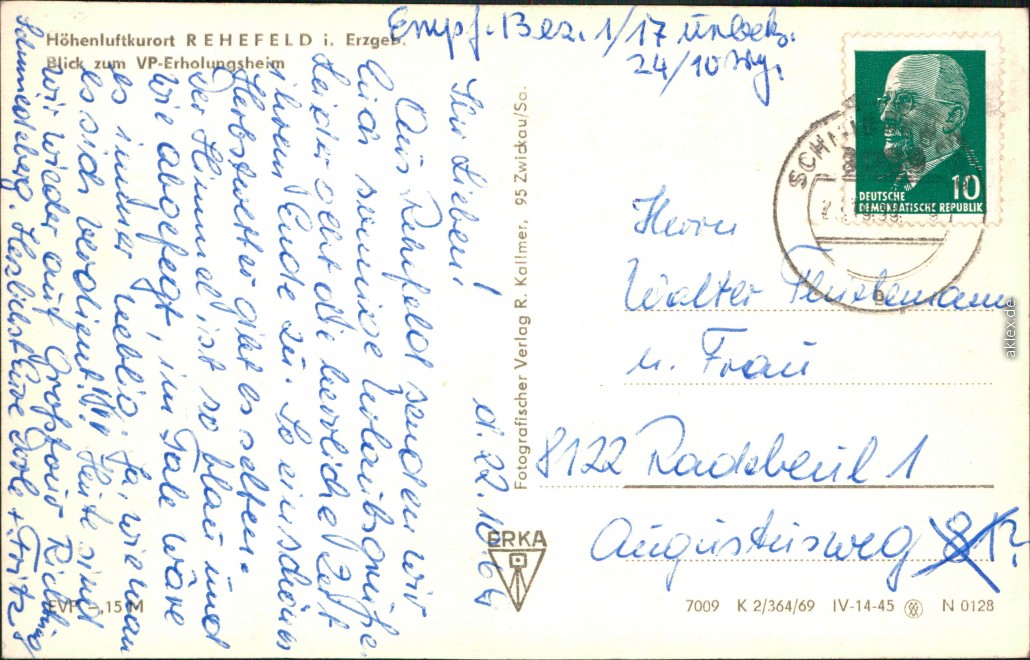 Höhenluftkurort REHEFELD i. Erzgeb.
Blick zum VP-Erholungsheim
Empf. Bez. 1/17 unbek.
24/10
Ihr Lieben!
d. 22.10.69
Aus Rehefeld senden wir
Euch sonnige Urlaubsgrüße.
Leider geht die herrliche Zeit
ihrem Ende zu. So ein schönes
Herbstwetter gibt es selten.
Der Himmel ist so blau und
wie abgefegt, im Tale wäre
es immer neblig. Ja, wie man
es sich verdient!!! Heute sind
wir wieder auf Großtour Richtung
Schmiedeberg. Herzlichst Eure Dorle + Fritz
Fotografischer Verlag R. Kallmer, 95 Zwickau/Sa.
ERKA
10
DEUTSCHE
DEMOKRATISCHE REPUBLIK
Herrn
Walter
u. Frau
8122 Radebeul 1
Augustusweg 8 1?
EVP -,15 M
7009 K 2/364/69 IV-14-45 N 0128
aklex.de